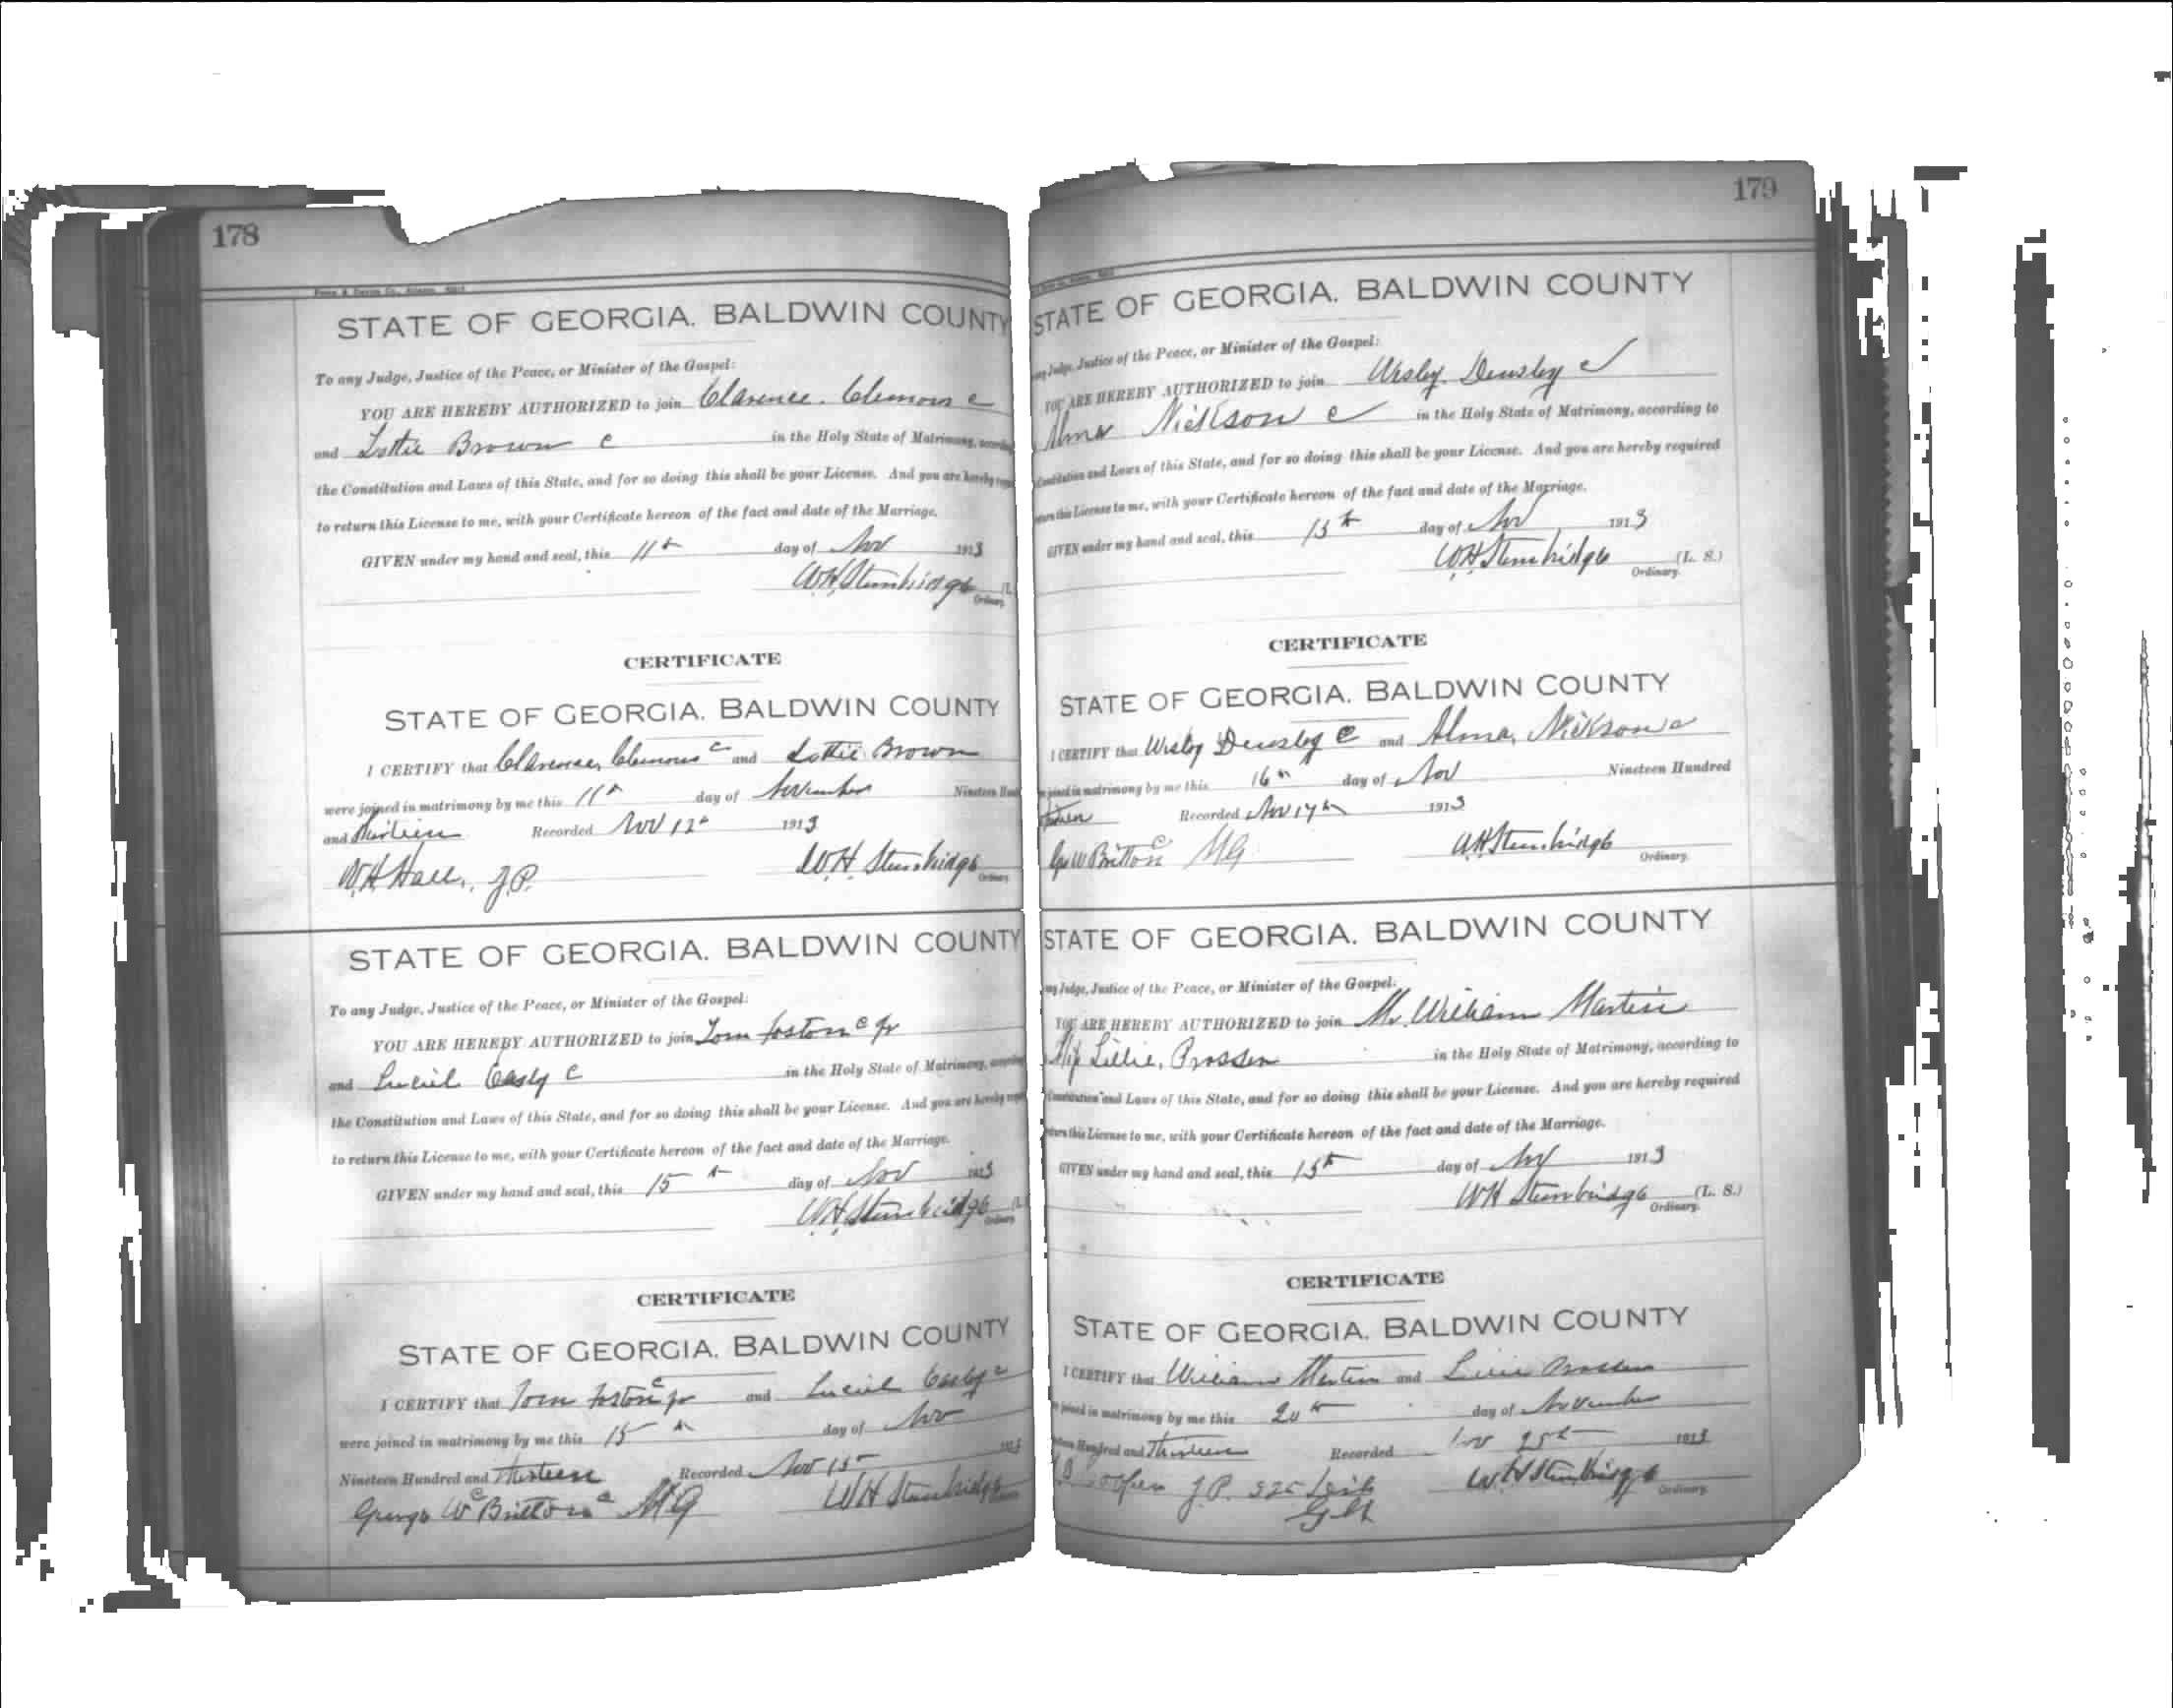 178
STATE OF GEORGIA. BALDWIN COUNTY
To any Judge, Justice of the Peace, or Minister of the Gospel:
YOU ARE HEREBY AUTHORIZED to join Clarence Clemons c
and Lottie Brown c in the Holy State of Matrimony,
the Constitution and Laws of this State, and for so doing this shall be your License. And you are hereby
to return this License to me, with your Certificate hereon of the fact and date of the Marriage.
GIVEN under my hand and seal, this 11th day of Nov 1913
W.H. Stembridge
Ordinary
CERTIFICATE
STATE OF GEORGIA. BALDWIN COUNTY
I CERTIFY that Clarence Clemons c and Lottie Brown
were joined in matrimony by me this 11th day of November Nineteen
and thirteen Recorded Nov 12th 1913
W.H. Hall, J.P. W.H. Stembridge
Ordinary
STATE OF GEORGIA. BALDWIN COUNTY
To any Judge, Justice of the Peace, or Minister of the Gospel:
YOU ARE HEREBY AUTHORIZED to join Tom Foston c Jr
and Luciel Easly c in the Holy State of Matrimony,
the Constitution and Laws of this State, and for so doing this shall be your License. And you are hereby
to return this License to me, with your Certificate hereon of the fact and date of the Marriage.
GIVEN under my hand and seal, this 15th day of Nov 1913
W.H. Stembridge
Ordinary
CERTIFICATE
STATE OF GEORGIA. BALDWIN COUNTY
I CERTIFY that Tom Foston c Jr and Luciel Easly c
were joined in matrimony by me this 15th day of Nov
Nineteen Hundred and thirteen Recorded Nov 15 1913
George W Britton c MG WH Stembridge
179
STATE OF GEORGIA. BALDWIN COUNTY
Judge, Justice of the Peace, or Minister of the Gospel:
YOU ARE HEREBY AUTHORIZED to join Wesley Densley c
Alma Nickson c in the Holy State of Matrimony, according to
Constitution and Laws of this State, and for so doing this shall be your License. And you are hereby required
this License to me, with your Certificate hereon of the fact and date of the Marriage.
GIVEN under my hand and seal, this 15th day of Nov 1913
W.H. Stembridge (L. S.)
Ordinary.
CERTIFICATE
STATE OF GEORGIA. BALDWIN COUNTY
I CERTIFY that Wesley Densley c and Alma Nickson c
joined in matrimony by me this 16th day of Nov Nineteen Hundred
Recorded Nov 17th 1913
Geo W Britton c MG W.H. Stembridge
Ordinary.
STATE OF GEORGIA. BALDWIN COUNTY
Judge, Justice of the Peace, or Minister of the Gospel:
YOU ARE HEREBY AUTHORIZED to join Mr. William Martin
Miss Lillie Prosser in the Holy State of Matrimony, according to
Constitution and Laws of this State, and for so doing this shall be your License. And you are hereby required
this License to me, with your Certificate hereon of the fact and date of the Marriage.
GIVEN under my hand and seal, this 15th day of Nov 1913
WH Stembridge (L. S.)
Ordinary.
CERTIFICATE
STATE OF GEORGIA. BALDWIN COUNTY
I CERTIFY that William Martin and Lillie Prosser
joined in matrimony by me this 20th day of November
Hundred and Thirteen Recorded Nov 25th 1913
J.P. W.H. Stembridge
Ordinary.